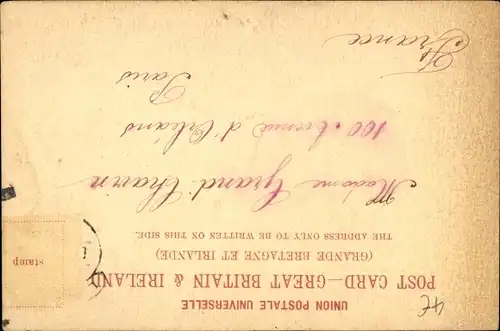 UNION POSTALE UNIVERSELLE
POST CARD—GREAT BRITAIN & IRELAND
(GRANDE BRETAGNE ET IRLANDE)
THE ADDRESS ONLY TO BE WRITTEN ON THIS SIDE.
stamp
Madame Grand Chavin
100 Avenue d'Orléans
Paris
France